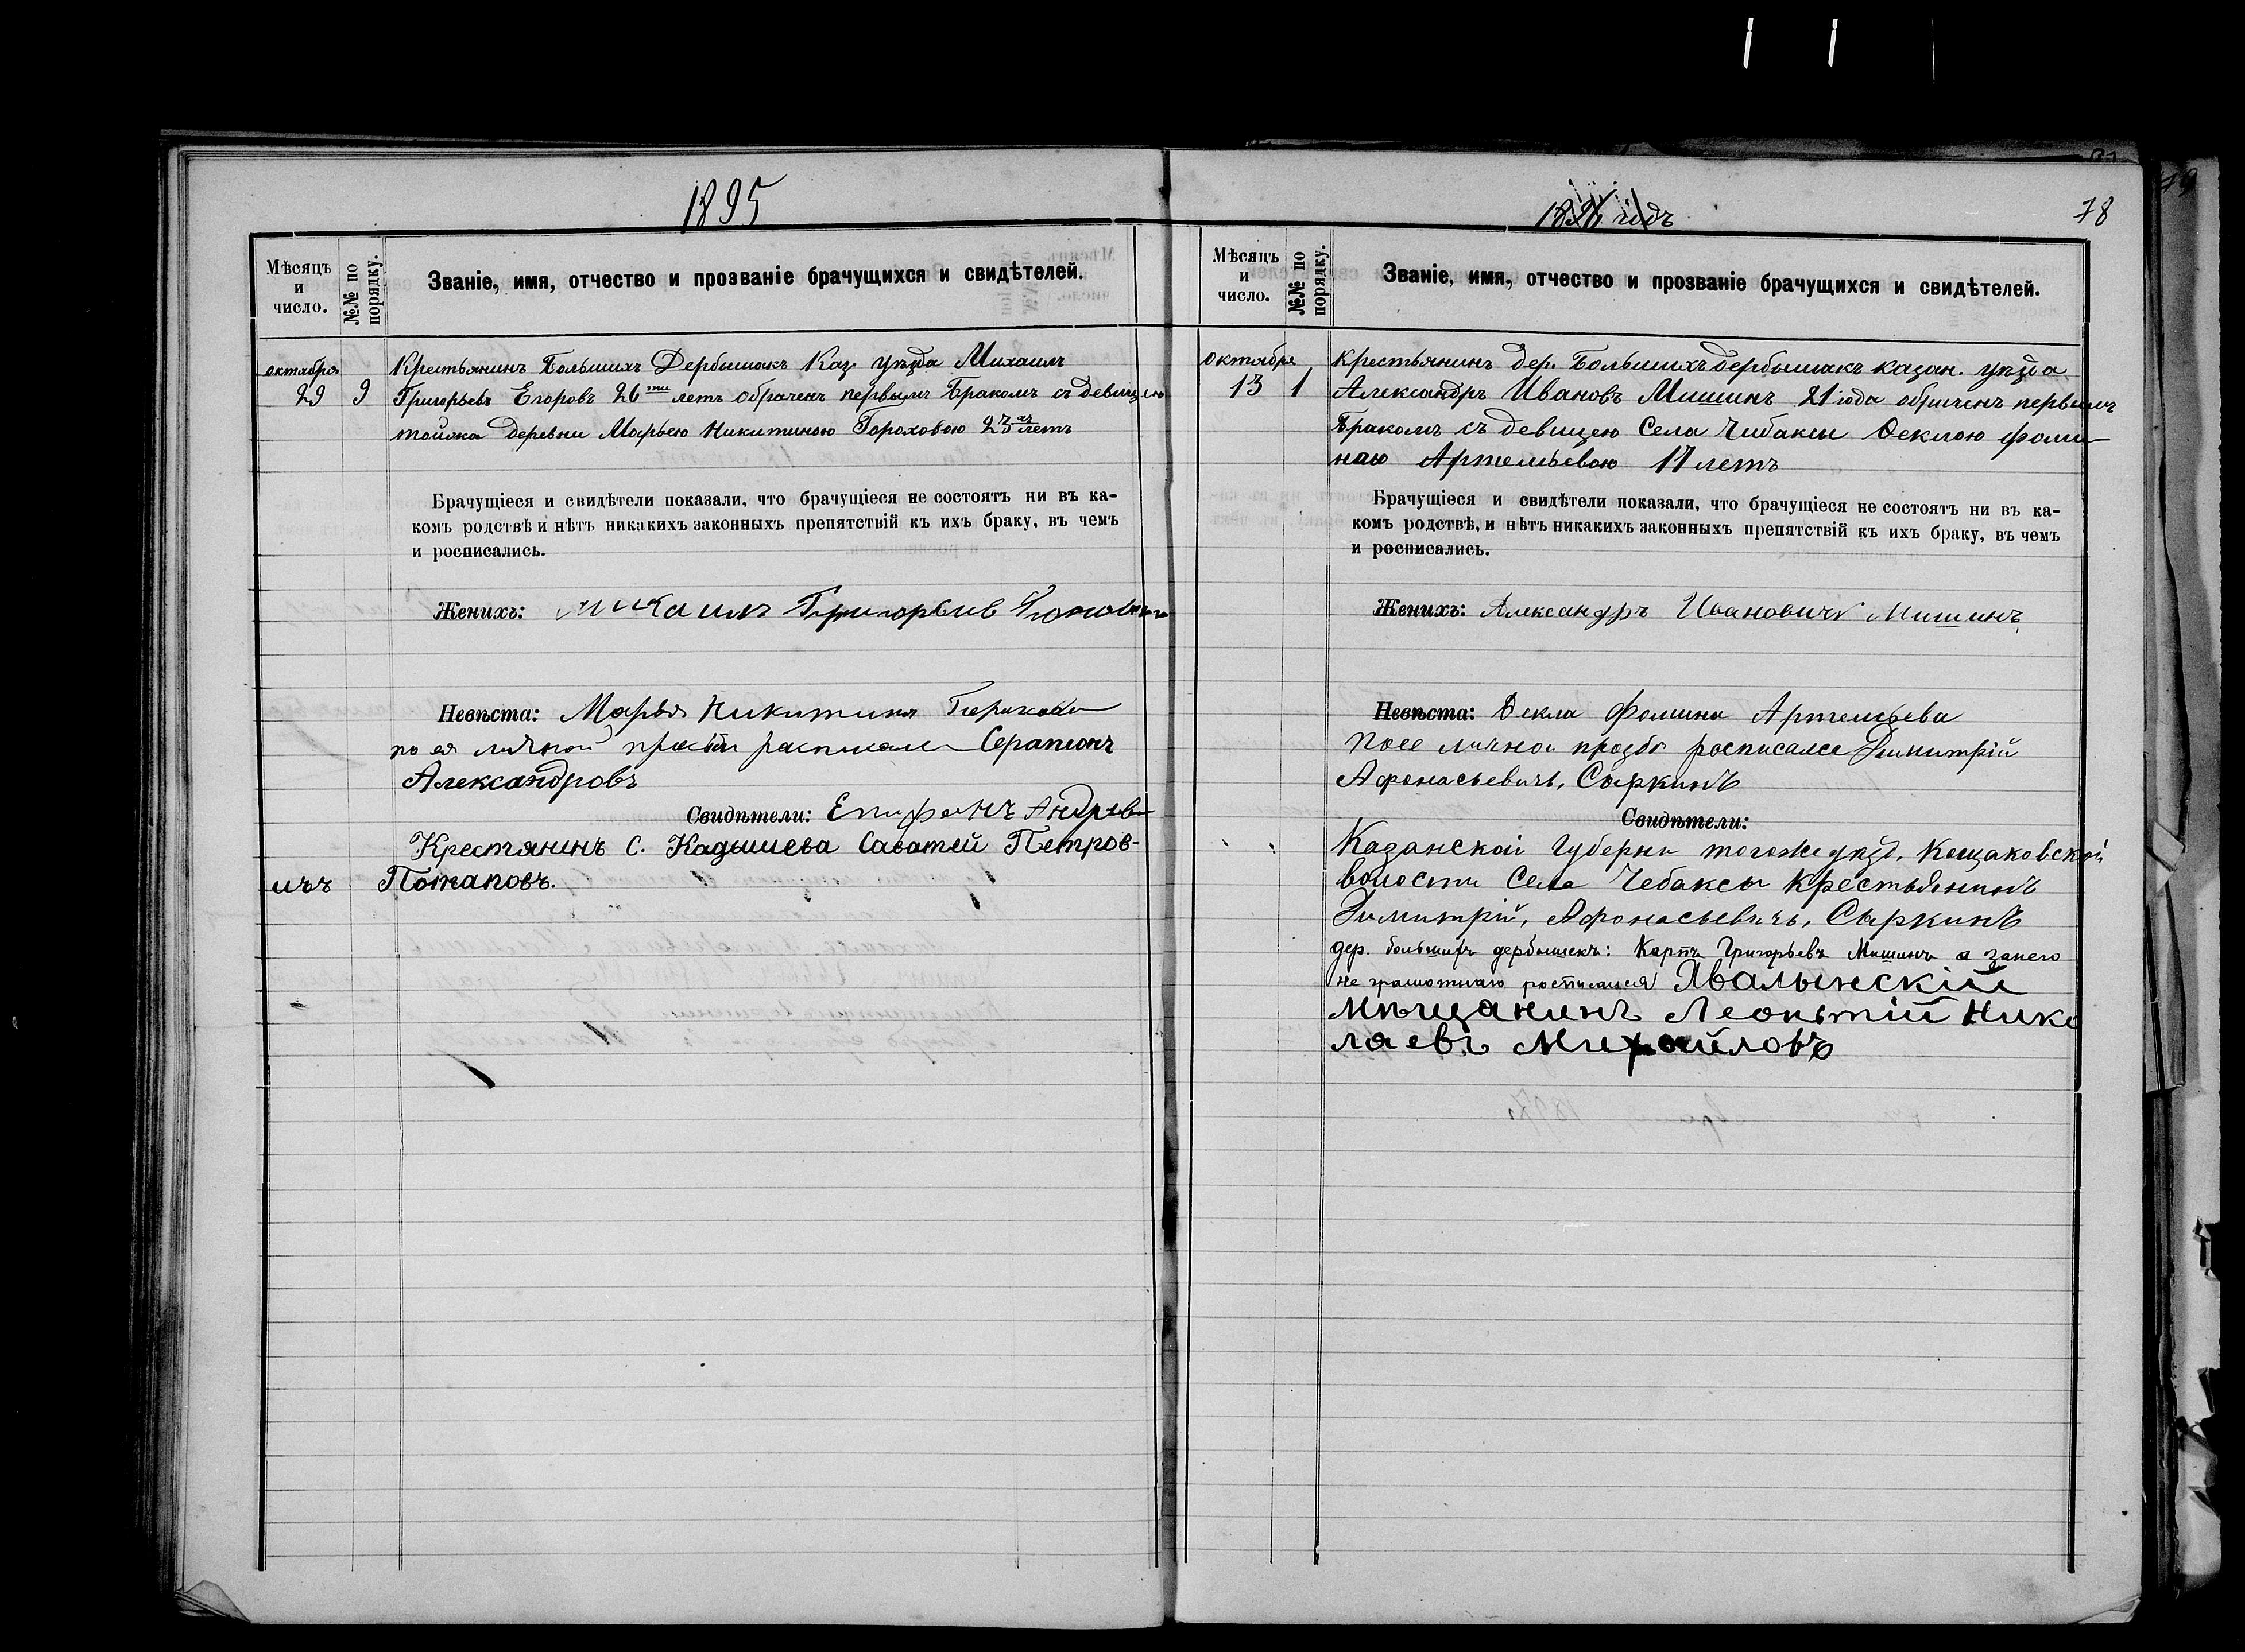 1895
Мѣсяцъ
и
число.
№№ по
порядку.
Званіе, имя, отчество и прозваніе брачущихся и свидѣтелей.
октября
29
9
Крестьянинъ Большихъ Дербышакъ Каз. уѣзда Михаилъ
Григорьевъ Егоровъ 26ти летъ обраченъ первымъ бракомъ съ девицею
тойжа деревни Марьею Никитиною Гороховою 23 летъ
Брачущіеся и свидѣтели показали, что брачущіеся не состоятъ ни въ ка-
комъ родствѣ и нѣтъ никакихъ законныхъ препятствій къ ихъ браку, въ чемъ
и росписались.
Женихъ: Михаилъ Григорьив
Невѣста: Марья Никитина Горохова
по ея личной прозьби Серапіонъ
Александровъ
Свидѣтели: Епифанъ Андреев
Крестянинъ С. Кадышева Саватѣй Петров-
ичъ Потаповъ.
78
1896 годъ
Мѣсяцъ
и
число.
№№ по
порядку.
Званіе, имя, отчество и прозваніе брачущихся и свидѣтелей.
октября
13
1
крестьянинъ дер. Большихъ дербышакъ казан. уѣзда
Александръ Ивановъ Мишинъ 21 года обраченъ первымъ
Бракомъ съ девицею Села Чибаксы Ѳеклою фоми-
наю Артемьевою 17 летъ
Брачущіеся и свидѣтели показали, что брачущіеся не состоятъ ни въ ка-
комъ родствѣ, и нѣтъ никакихъ законныхъ препятствій къ ихъ браку, въ чемъ
и росписались.
Женихъ: Александръ Ивановичъ Мишинъ
Невѣста: Ѳекла Фомина Артемьева
Поее личнои прозбѣ росписалса Димитрій
Афонасьевичъ, Сыркинъ
Свидѣтели:
Казанскои Губерни тогоже уѣзд. Кощаковской
волости Села Чебаксы Крестьянинъ
Димитрій, Афонасьевичъ, Сыркинъ
дер. большихъ дербышекъ: Карпъ Григорьевъ Мишинъ а занего
не грамотнаго росписался Хвалынскій
мѣщанинъ Леонтій Нико
лаевъ Михайловъ